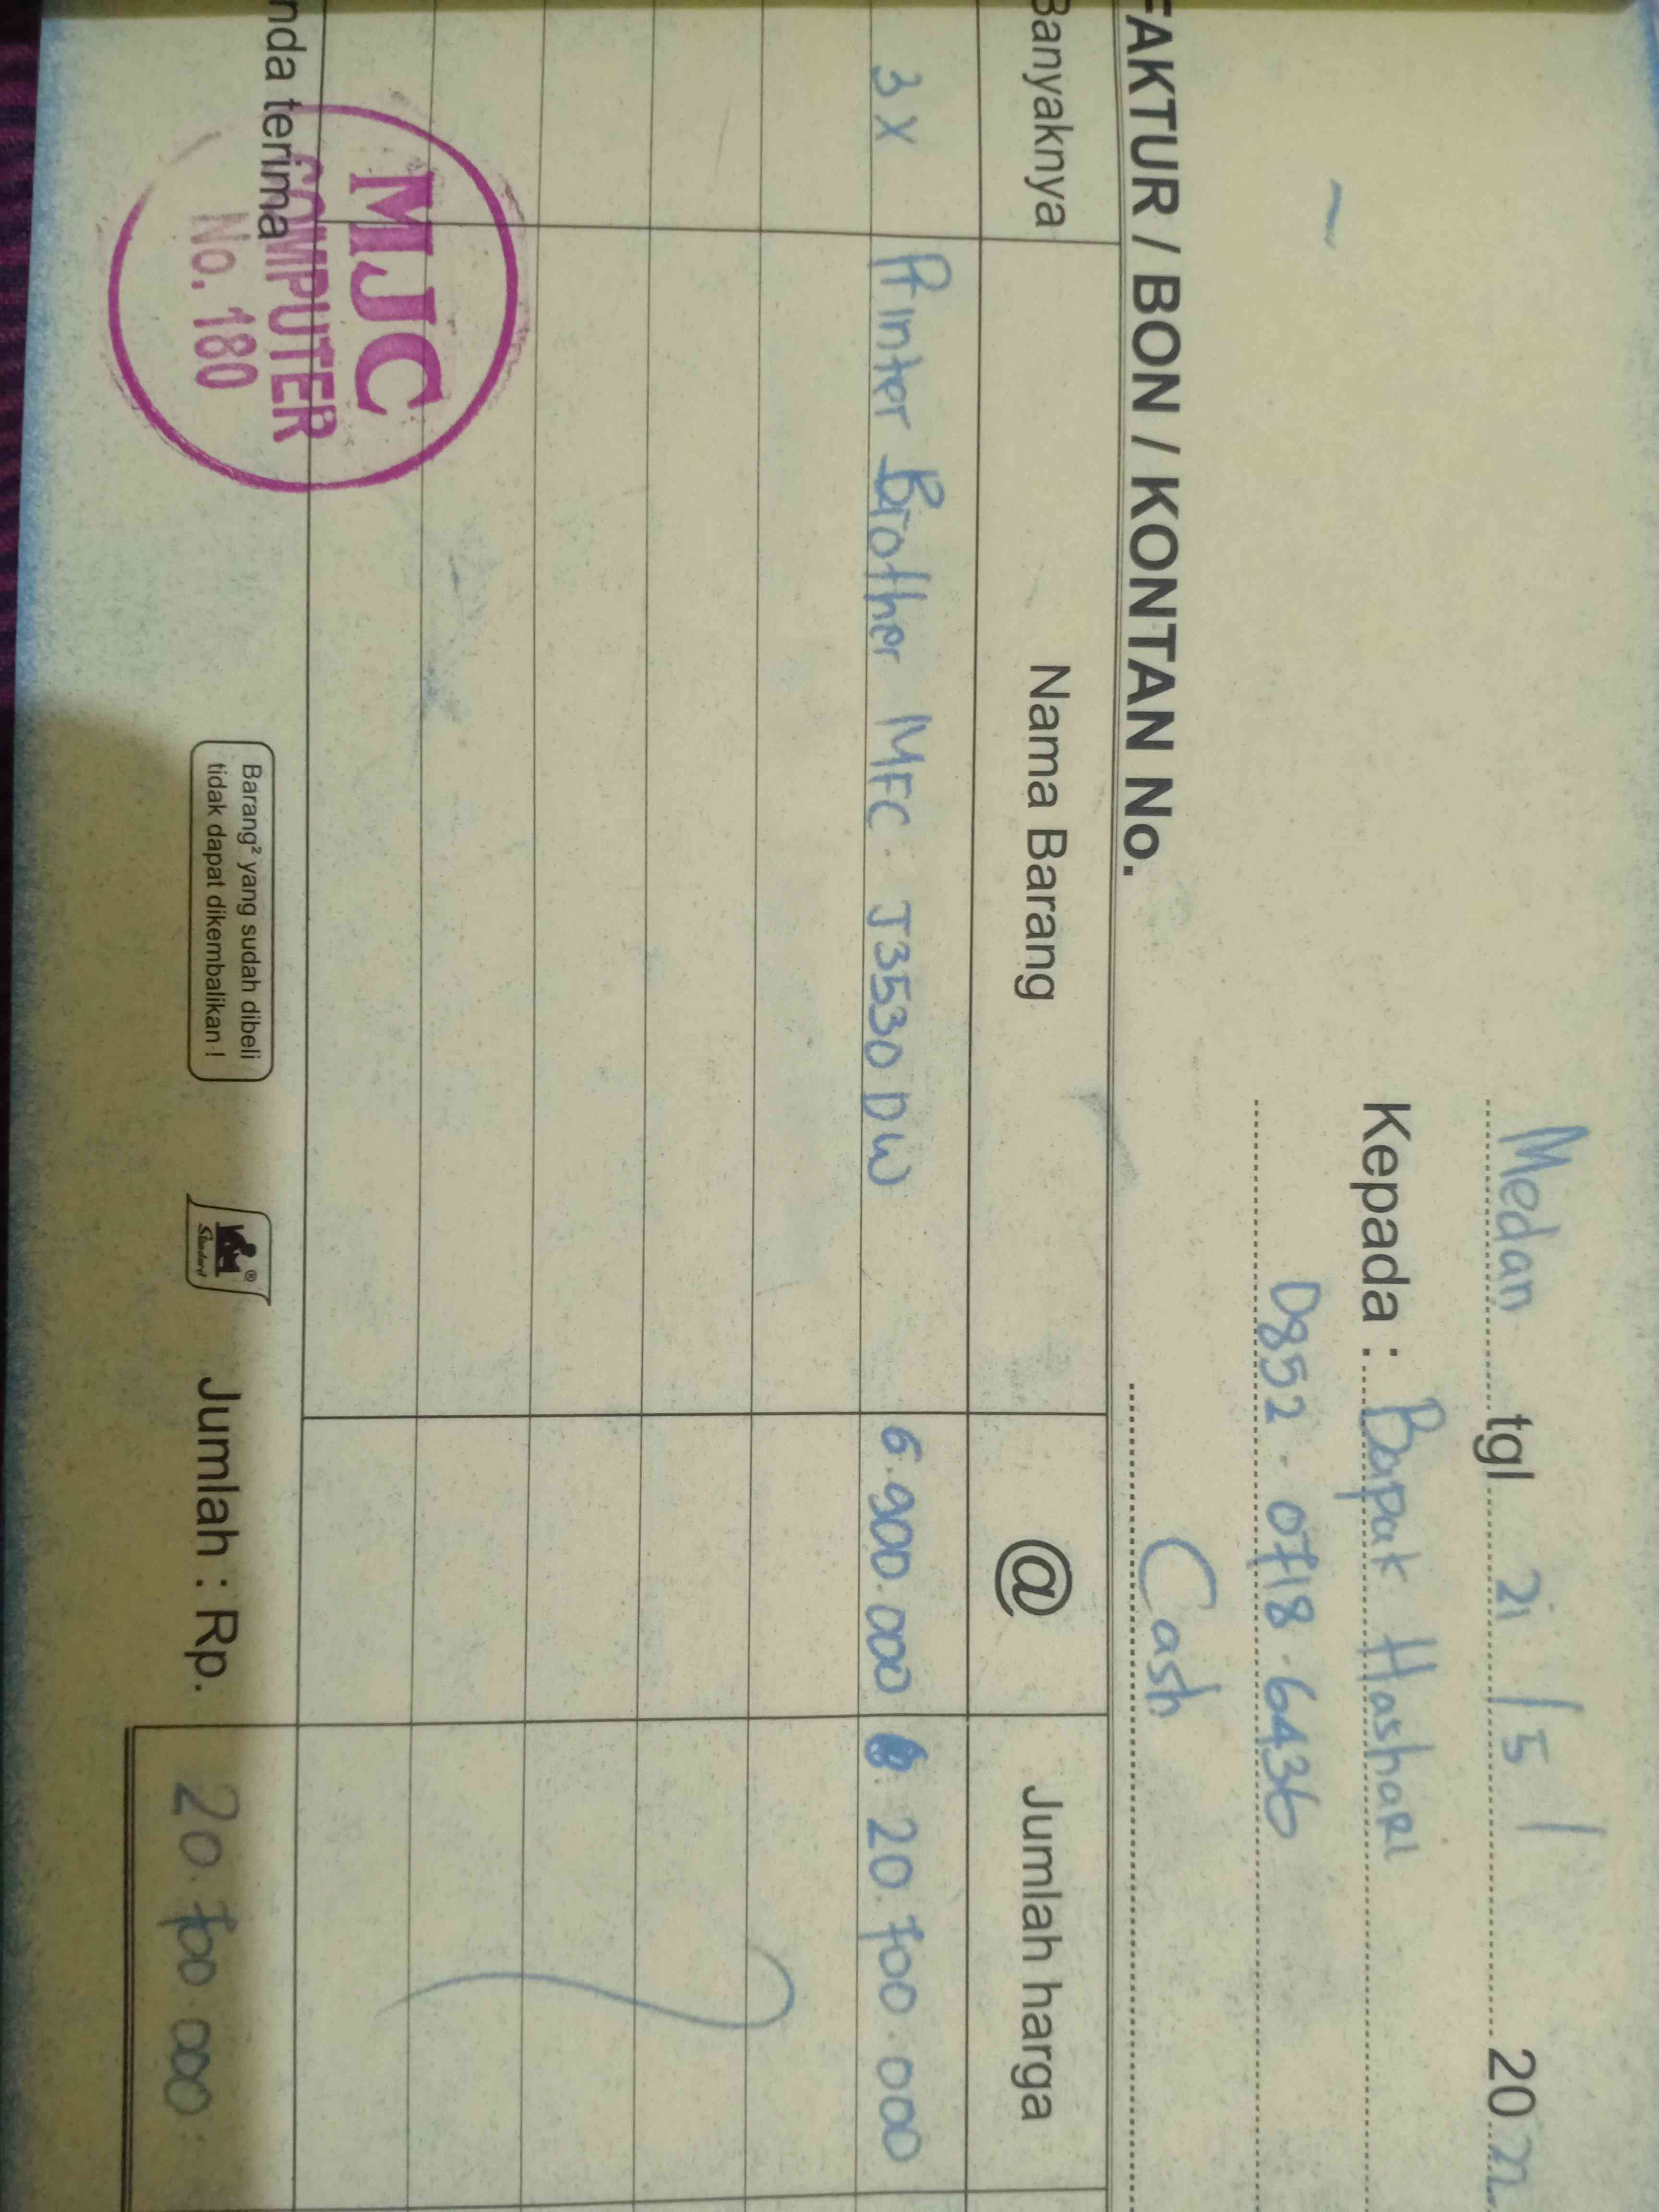 Medan tgl 21 / 5 / 20
Kepada : Bapak Hashari
0852 - 0718 - 6436
FAKTUR / BON / KONTAN No. Cash
Banyaknya Nama Barang @ Jumlah harga
3 X Printer Brother MFC - J3530 DW 6.900.000 20.700.000
nda terima
Barang² yang sudah dibeli
tidak dapat dikembalikan !
Standard
Jumlah : Rp. 20.700.000
MJC
COMPUTER
No. 180